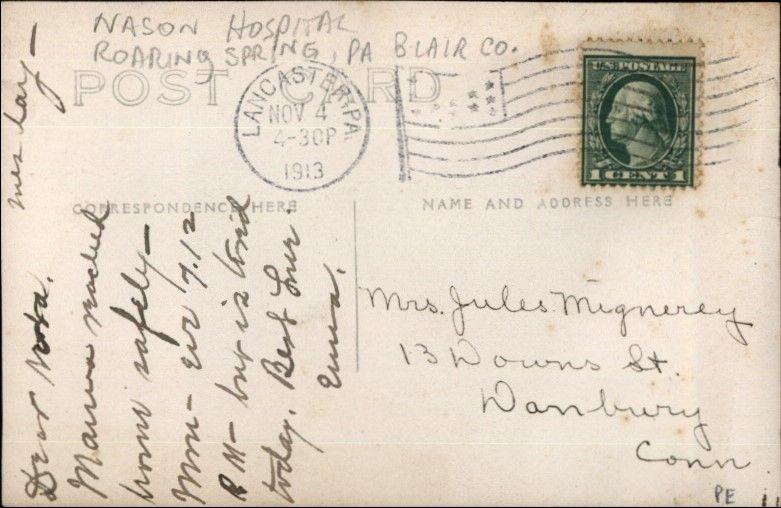 NASON HOSPITAL
ROARING SPRING, PA BLAIR CO.
POST CARD
LANCASTER, PA.
NOV 4
4-30P
1913
U.S. POSTAGE
1 CENT 1
CORRESPONDENCE HERE
NAME AND ADDRESS HERE
Mrs. Jules Mignerey
13 Downs St.
Danbury
Conn
Dear
Mama reached
home safely—
Mon- eve 7.12
P.M— but is tired
today. Best Love.
Emma.
PE